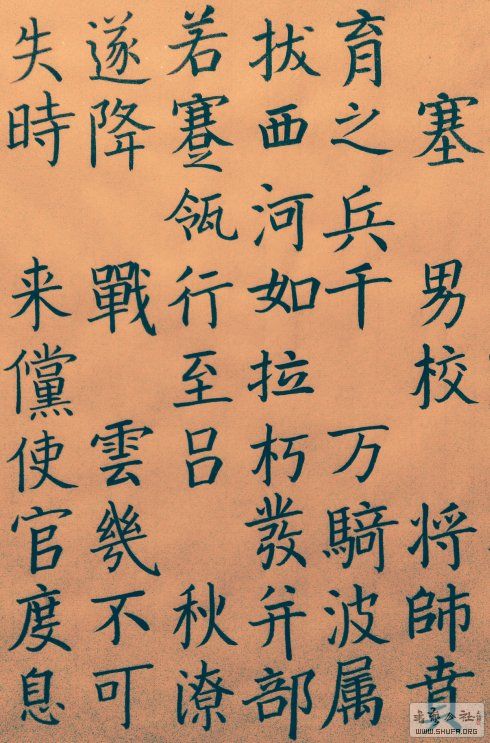 塞男校将師賁
育之兵千万騎波属
拔西河如拉朽發并部
若瓴行至吕秋潦
遂降戰雲幾不可
失時来儻使官度息
WWW.SHUFA.ORG